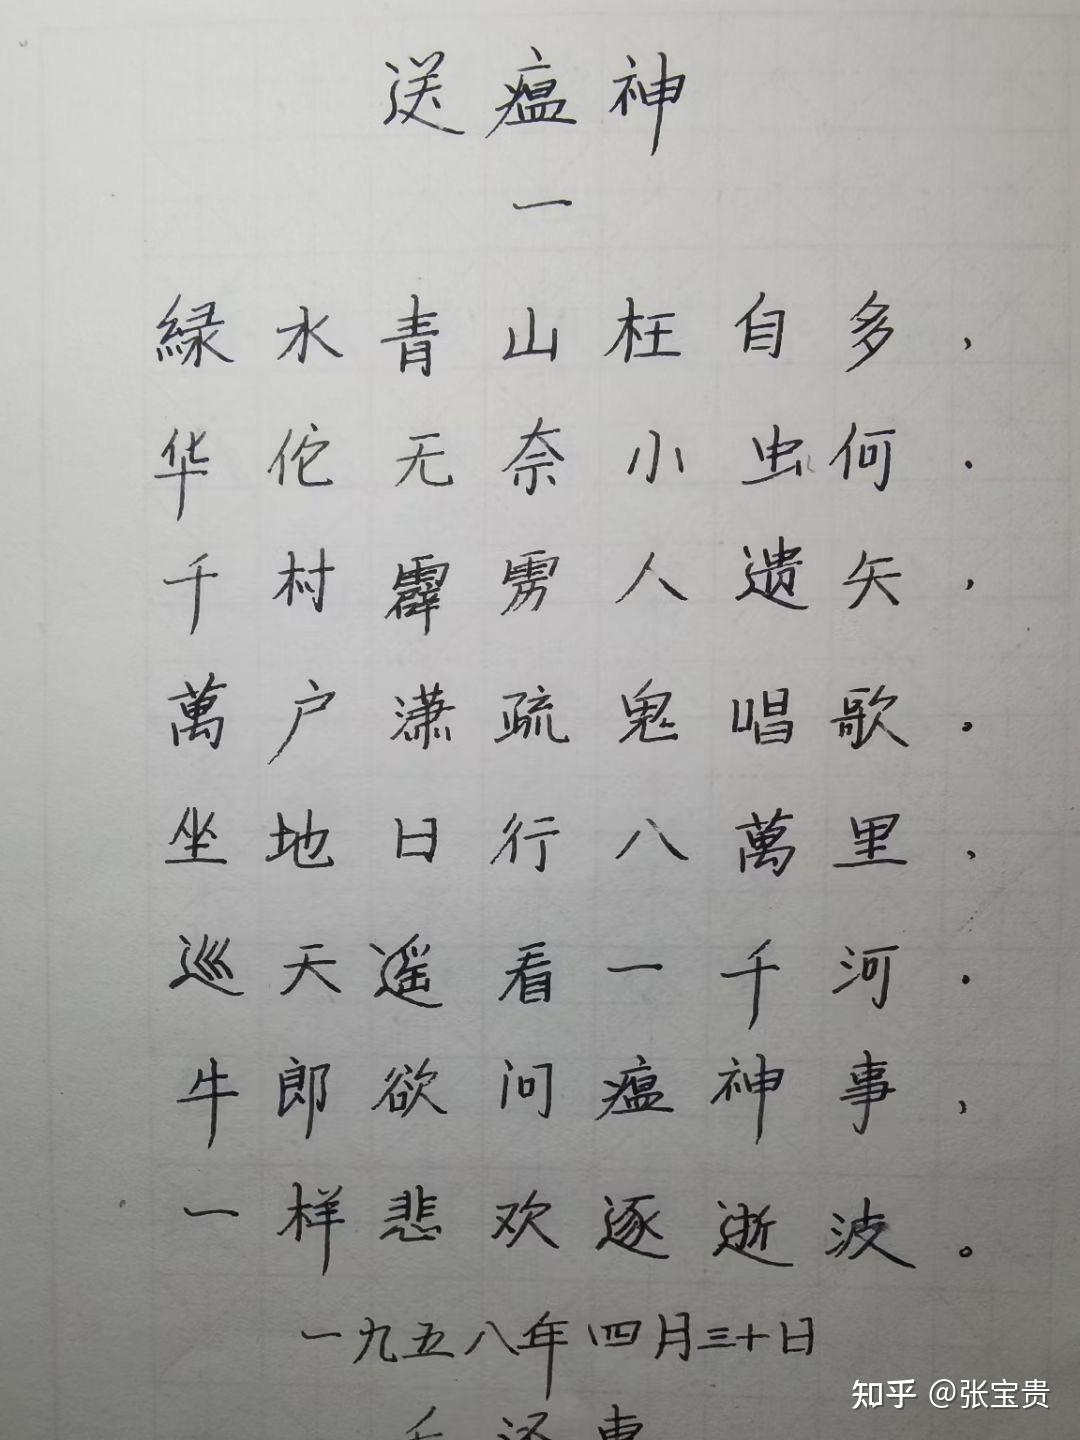 送瘟神
一
緑水青山枉自多，
华佗无奈小虫何．
千村霹雳人遗矢，
萬户潇疏鬼唱歌．
坐地日行八萬里，
巡天遥看一千河．
牛郎欲问瘟神事，
一样悲欢逐逝波。
一九五八年四月三十日
知乎 @张宝贵